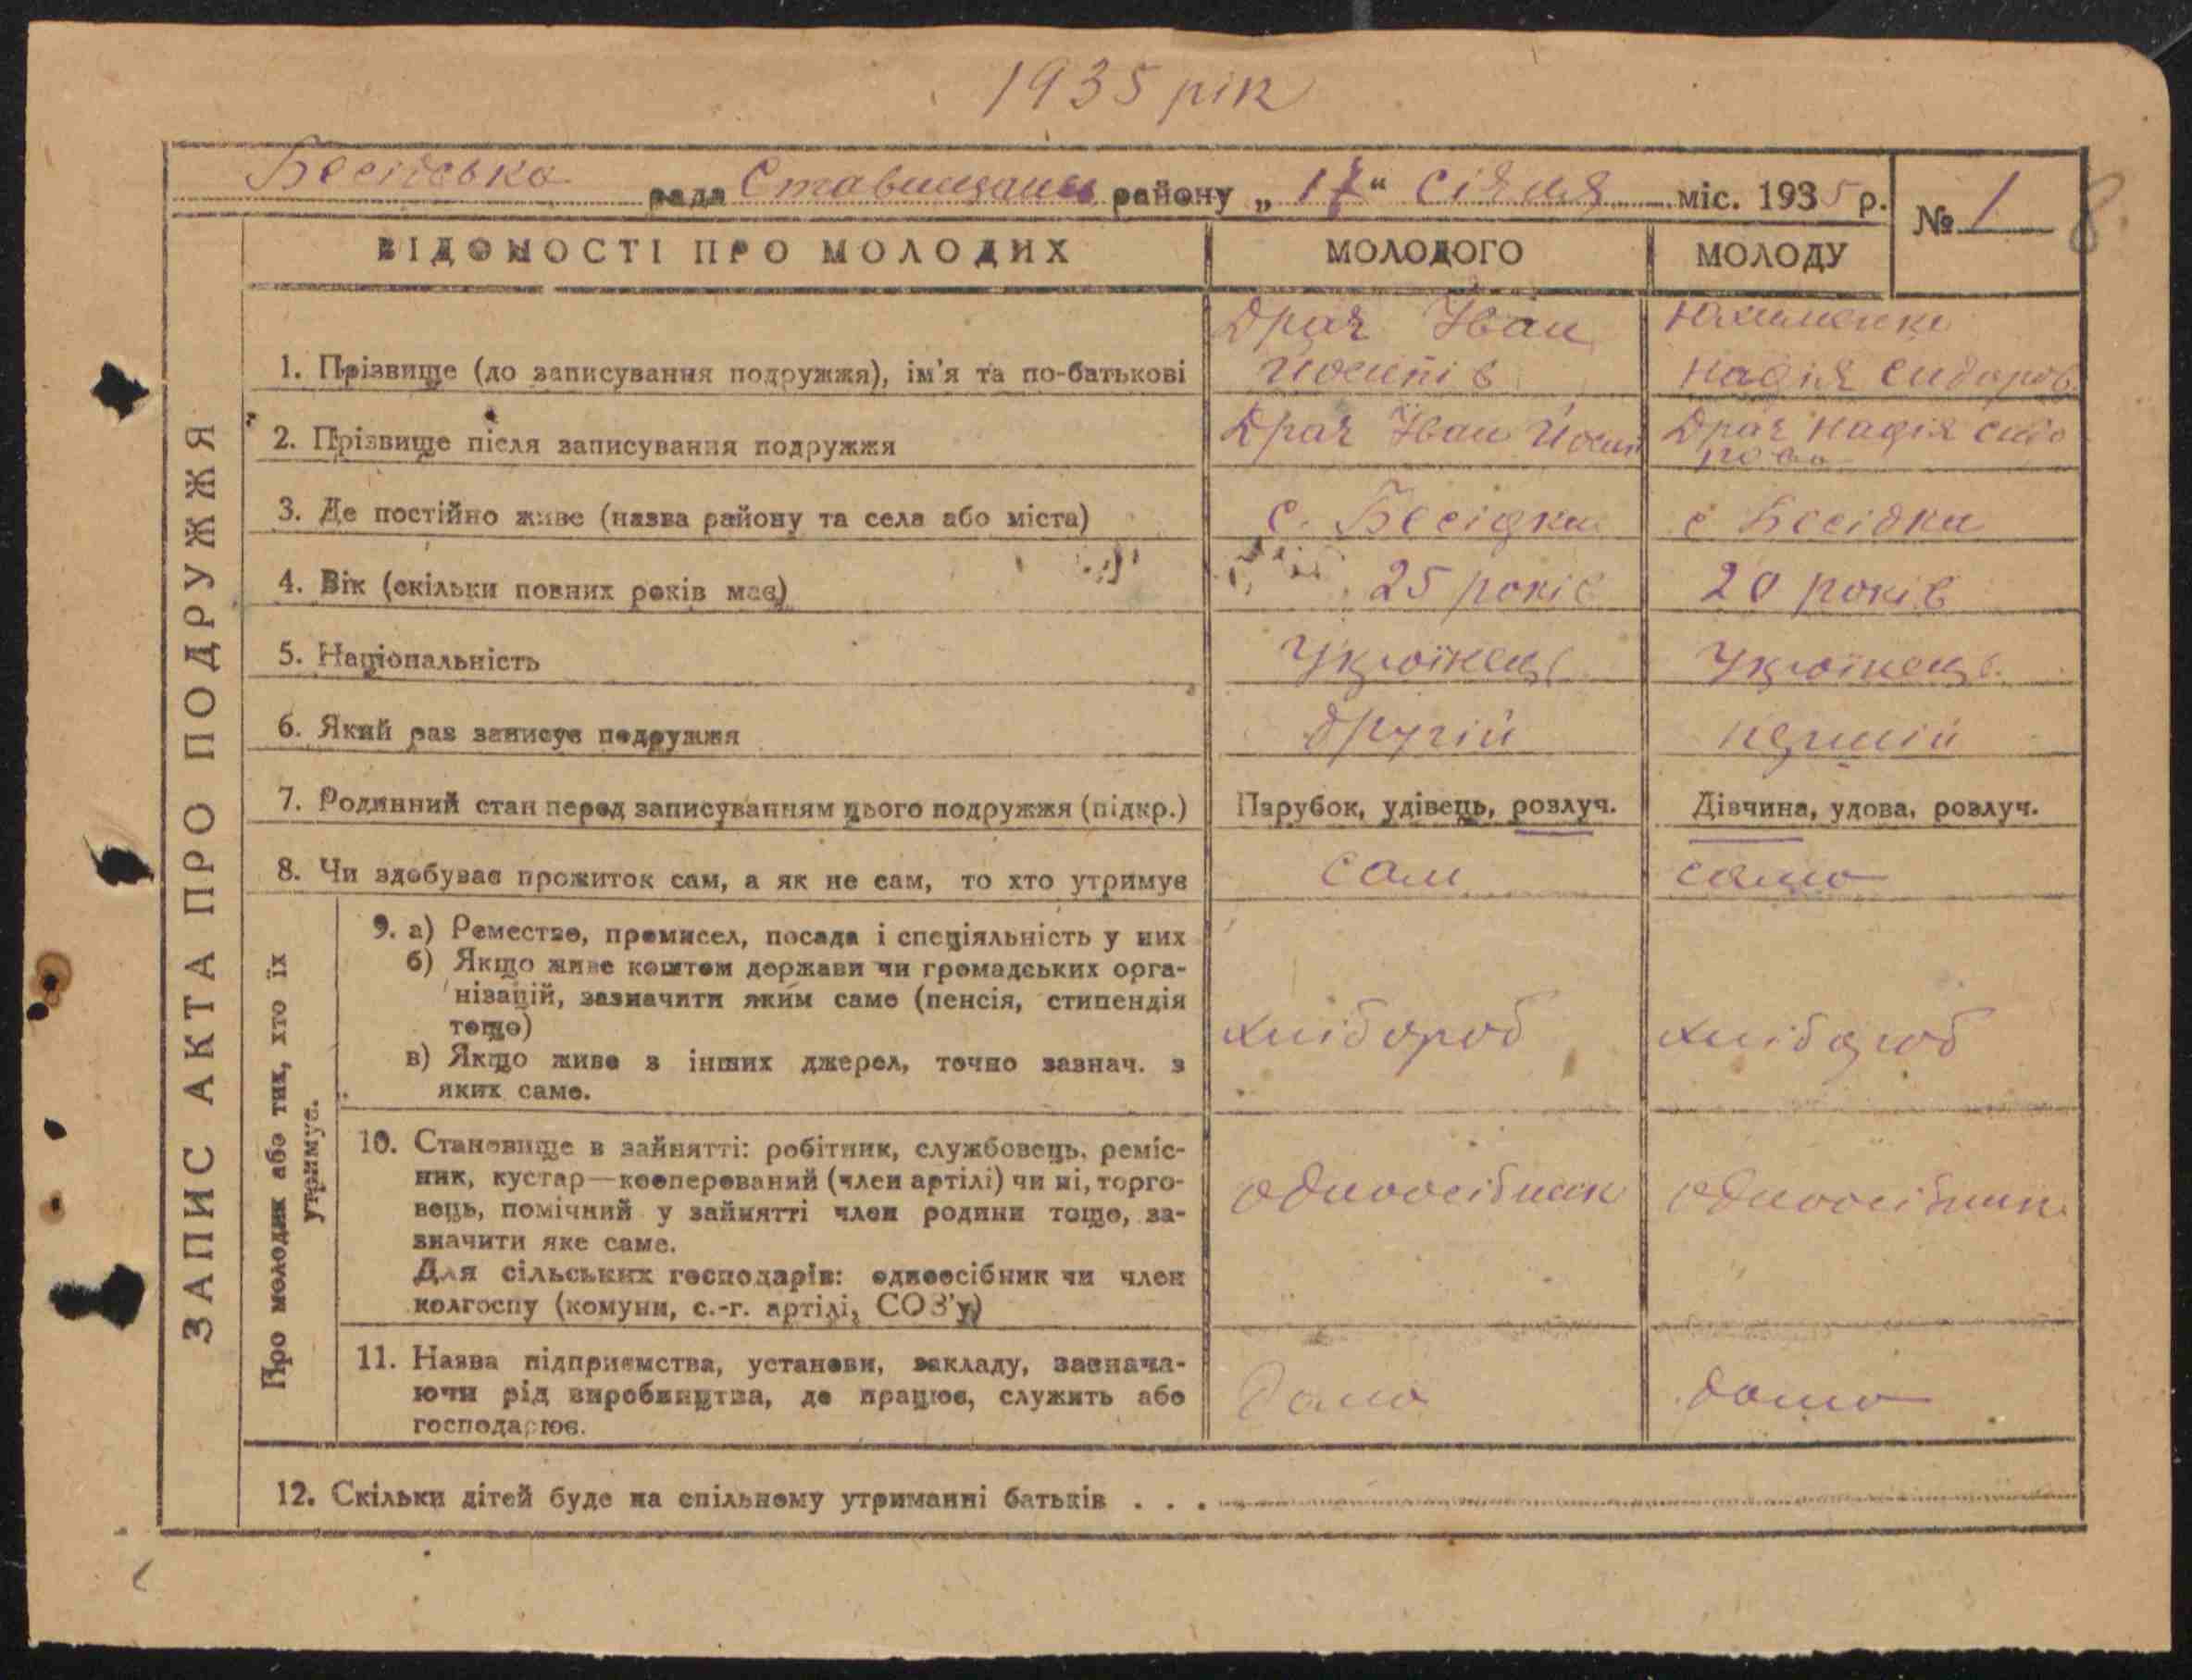 1935 рік
Бесідська рада Ставищанськ району „17“ Січня міс. 1935 р.
№ 1
8
ЗАПИС АКТА ПРО ПОДРУЖЖЯ
ВІДОМОСТІ ПРО МОЛОДИХ МОЛОДОГО МОЛОДУ
1. Прізвище (до записування подружжя), ім'я та по-батькові
Драч Іван
Йосипів
Надія Сидоров
2. Прізвище після записування подружжя
Драч Іван Йосип
Драч Надія Сидо
рова
3. Де постійно живе (назва району та села або міста) с. Бесідка с Бесідка
4. Вік (скільки повних років має) 25 років 20 років
5. Національність Українець Українець
6. Який раз записує подружжя другій першій
7. Родинний стан перед записуванням цього подружжя (підкр.) Парубок, удівець, розлуч. Дівчина, удова, розлуч.
8. Чи здобуває прожиток сам, а як не сам, то хто утримує сам сама
Про молодих або тих, хто їх
утримує.
9. а) Ремество, промисел, посада і спеціяльність у них
б) Якщо живе коштом держави чи громадських орга-
нізацій, зазначити яким саме (пенсія, стипендія
тощо)
в) Якщо живе з інших джерел, точно зазнач. з
яких саме.
хлібороб хлібороб
10. Становище в зайнятті: робітник, службовець, реміс-
ник, кустар—кооперований (член артілі) чи ні, торго-
вець, помічний у зайнятті член родини тощо, за-
значити яке саме.
Для сільських господарів: одноосібник чи член
колгоспу (комуни, с.-г. артілі, СОЗ'у)
одноосібник одноосібник
11. Назва підприємства, установи, закладу, зазнача-
ючи рід виробництва, де працює, служить або
господарює.
дома дома
12. Скільки дітей буде на спільному утриманні батьків . . .